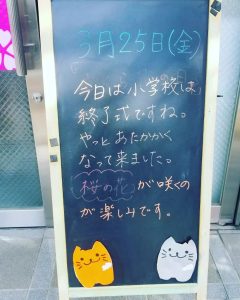 3月25日(金)
今日は小学校は、
終了式ですね。
やっとあたかかく
なって来ました。
桜の花が咲くの
が楽しみです。